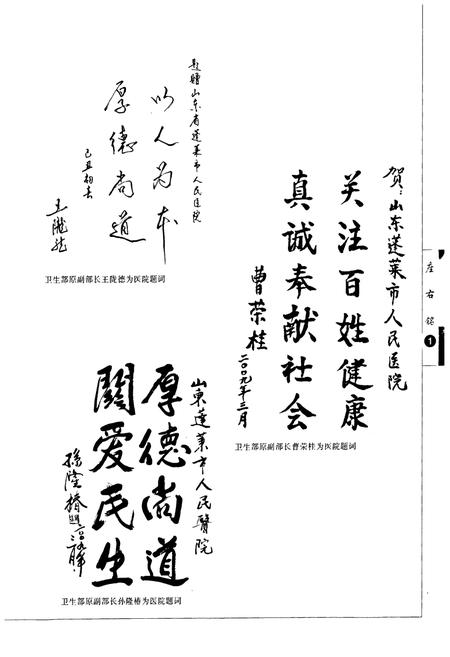 题赠山东省蓬莱市人民医院
以人为本
厚德尚道
己丑初春
王陇德
卫生部原副部长王陇德为医院题词
贺:山东蓬莱市人民医院
关注百姓健康
真诚奉献社会
曹荣桂
二〇〇九年三月
卫生部原副部长曹荣桂为医院题词
山东蓬莱市人民醫院
厚德尚道
關爱民生
孫隆椿
卫生部原副部长孙隆椿为医院题词
左右铭
1